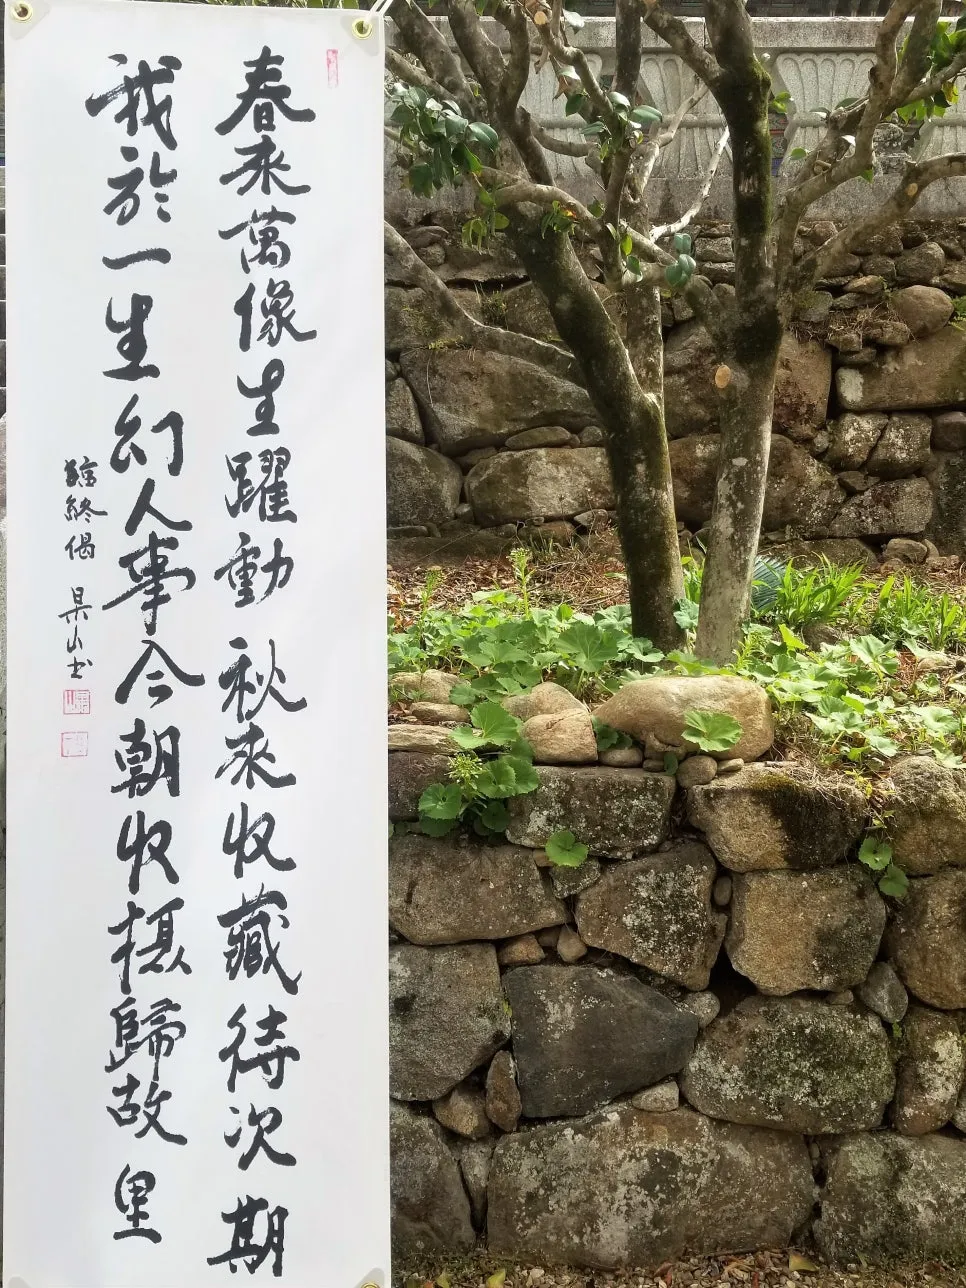 春來萬像生躍動秋來收藏待次期
我於一生幻人事今朝收攝歸故里
臨終偈 杲山書